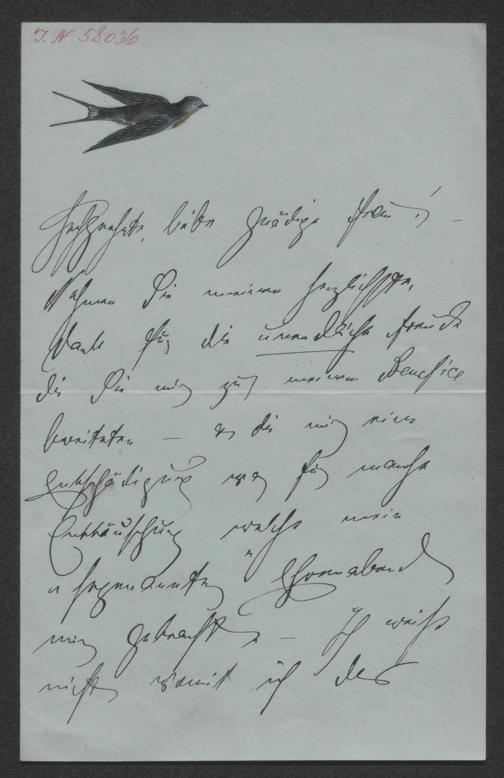 J. N. 58036
Hochgeehrte, liebe gnädige Frau! –
Nehmen Sie meinen herzlichsten
Dank für die unendliche Freude
die Sie mir zu meinem Benefice
bereiteten – die mir eine
Entschädigung war für manche
Enttäuschung welche mein
"sogenannter" Ehrenabend
mir gebracht. – Ich weiß
nicht womit ich das